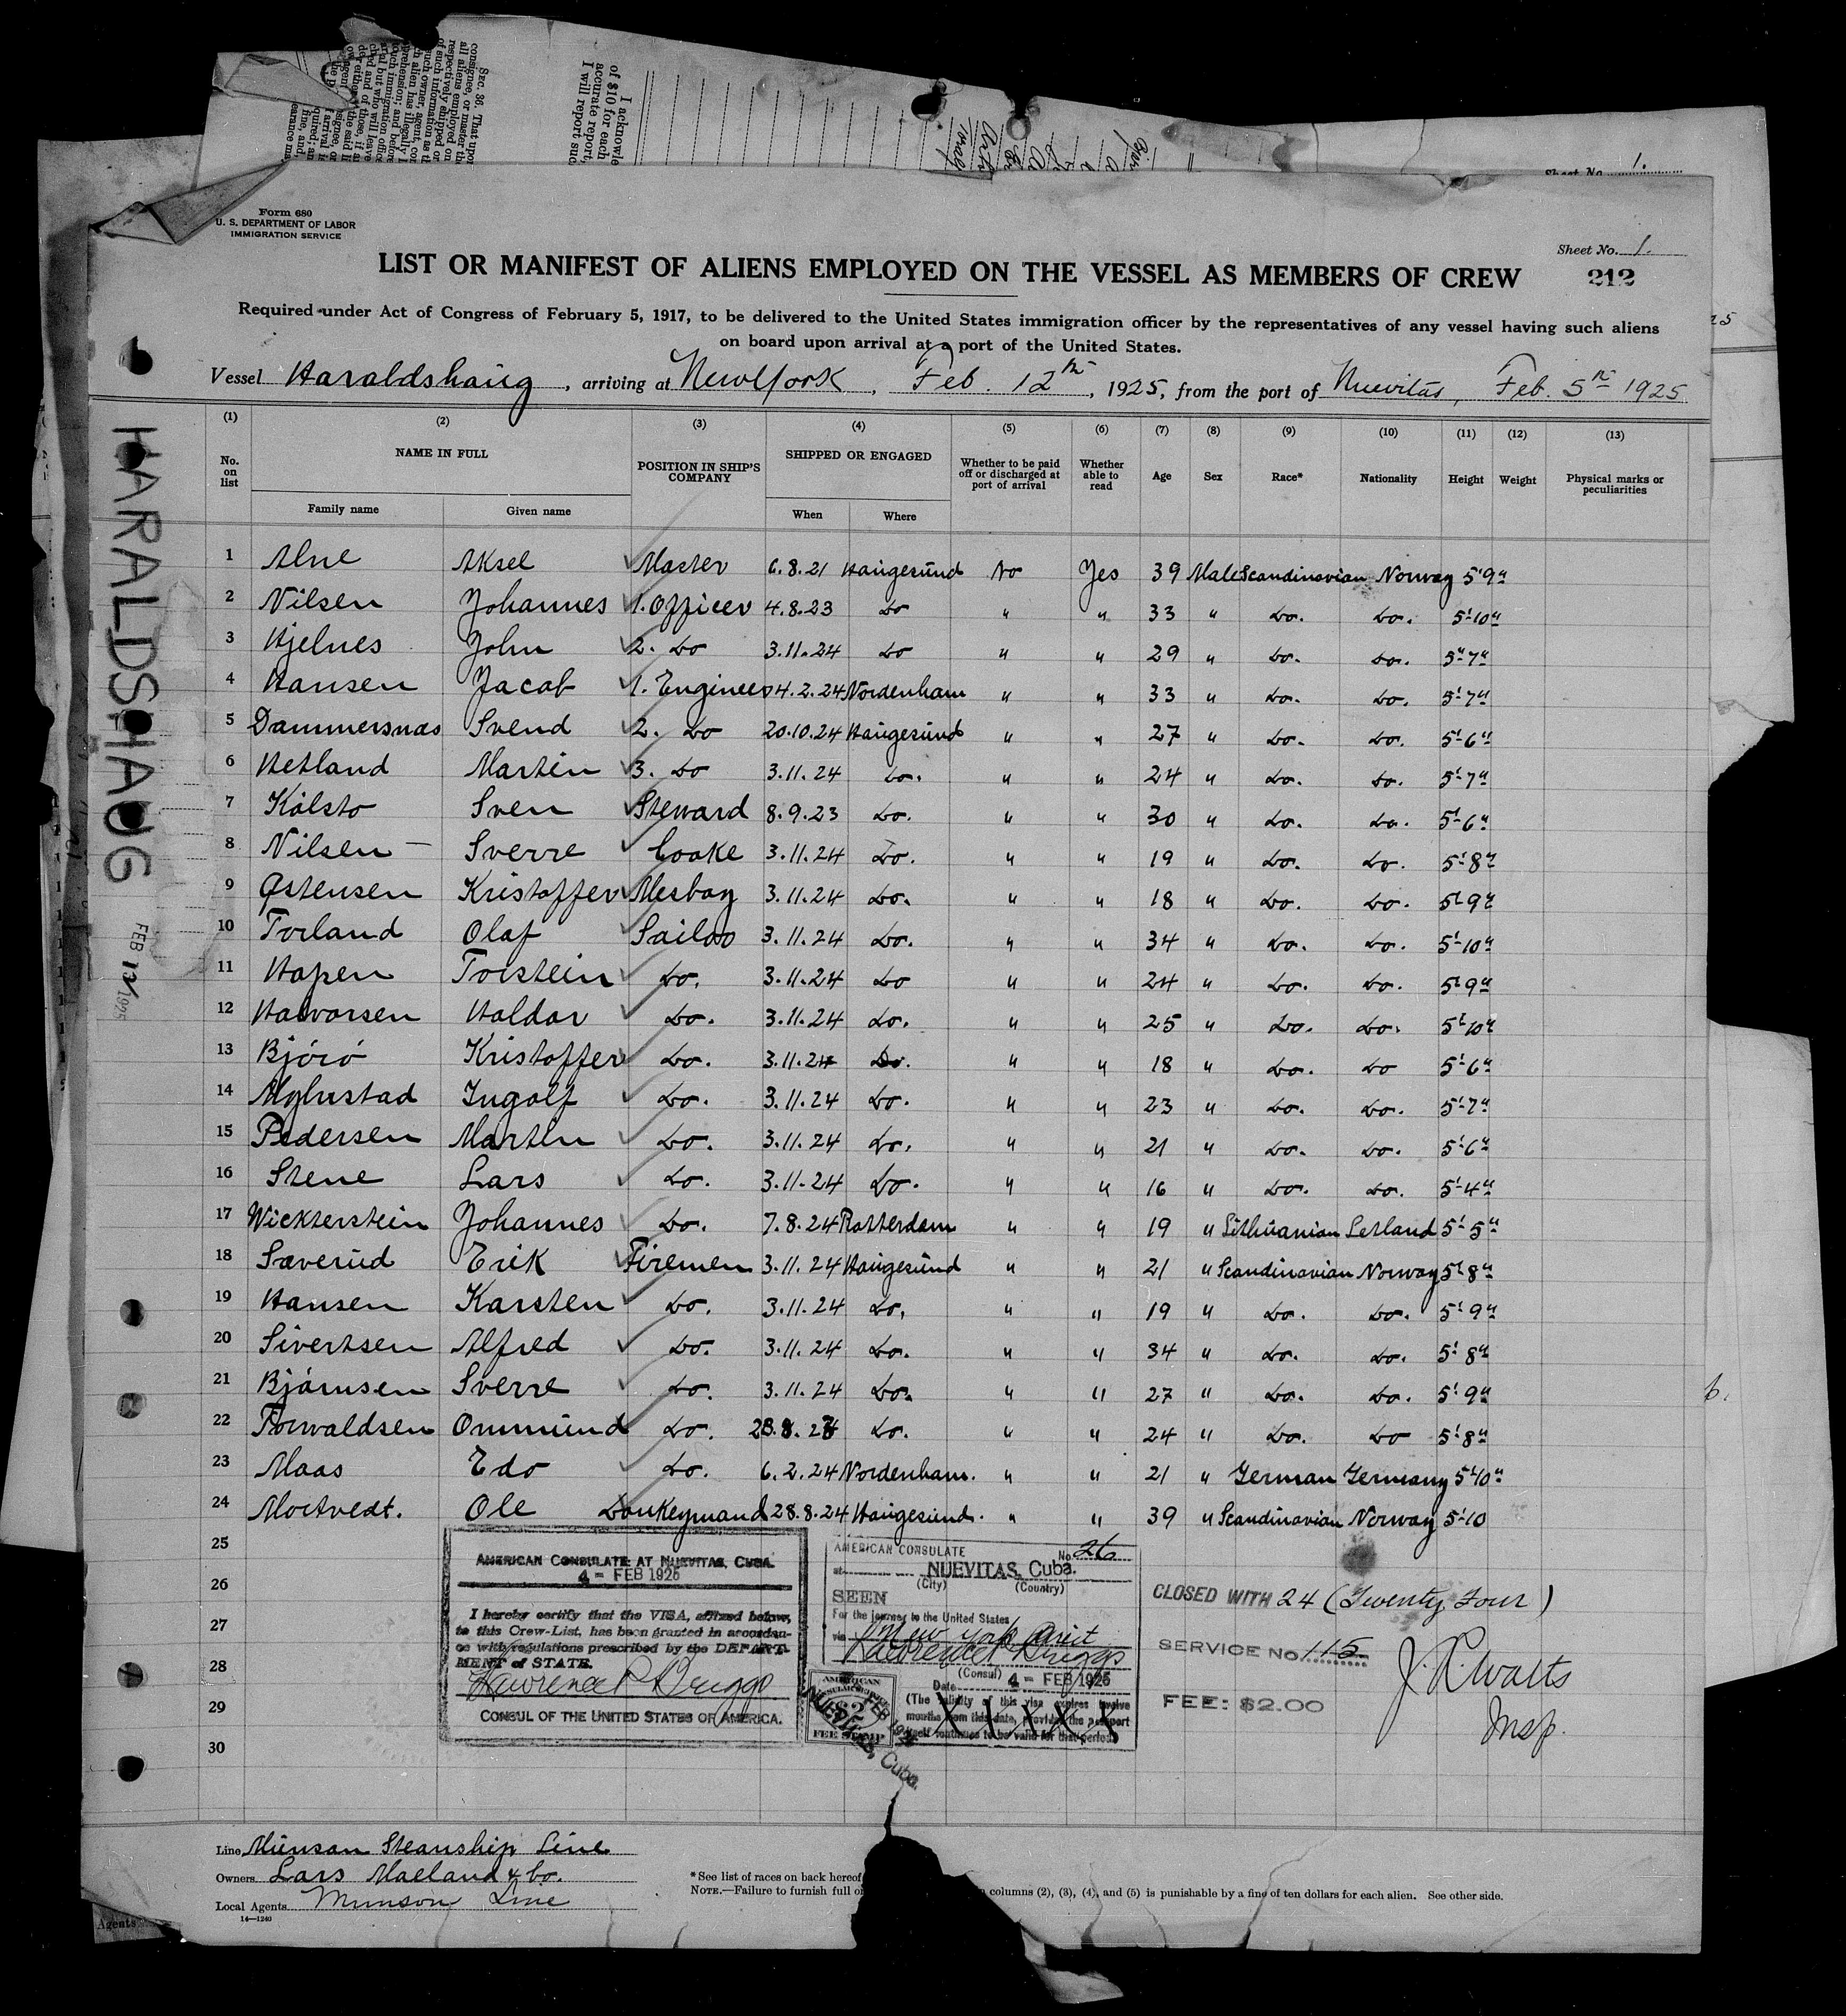 Sheet No. 1.
Form 680
U. S. DEPARTMENT OF LABOR
IMMIGRATION SERVICE
Sheet No. 1.
LIST OR MANIFEST OF ALIENS EMPLOYED ON THE VESSEL AS MEMBERS OF CREW
212
Required under Act of Congress of February 5, 1917, to be delivered to the United States immigration officer by the representatives of any vessel having such aliens
on board upon arrival at a port of the United States.
Vessel Haraldshaug, arriving at New York, Feb. 12th, 1925, from the port of Nuevitas, Feb. 5th 1925
HARALDSHAUG
FEB 13 1925
(1) (2) (3) (4) (5) (6) (7) (8) (9) (10) (11) (12) (13)
No. on list NAME IN FULL POSITION IN SHIP'S COMPANY SHIPPED OR ENGAGED Whether to be paid off or discharged at port of arrival Whether able to read Age Sex Race* Nationality Height Weight Physical marks or peculiarities
Family name Given name When Where
1 Alne Aksel Master 6.8.21 Haugesund No Yes 39 Male Scandinavian Norway 5'9"
2 Nilsen Johannes 1. Officer 4.8.23 Do " " 33 " Do. Do. 5'10"
3 Hjelnes John 2. Do 3.11.24 Do " " 29 " Do. Do. 5"7"
4 Hansen Jacob 1. Engineer 4.2.24 Nordenham " " 33 " Do. Do. 5'7"
5 Dammersnas Svend 2. Do 20.10.24 Haugesund " " 27 " Do. Do. 5'6"
6 Hetland Martin 3. Do 3.11.24 Do. " " 24 " Do. Do. 5'7"
7 Kólsto Sven Steward 8.9.23 Do. " " 30 " Do. Do. 5'6"
8 Nilsen Sverre Cooke 3.11.24 Do. " " 19 " Do. Do. 5'8"
9 Østensen Kristoffer Mesboy 3.11.24 Do. " " 18 " Do. Do. 5'9"
10 Torland Olaf Sailor 3.11.24 Do. " " 34 " Do. Do. 5'10"
11 Hapen Torstein Do. 3.11.24 Do " " 24 " Do. Do. 5'9"
12 Halvorsen Haldor Do. 3.11.24 Do. " " 25 " Do. Do. 5'10"
13 Bjóró Kristoffer Do. 3.11.24 Do. " " 18 " Do. Do 5'6"
14 Myhustad Ingolf Do. 3.11.24 Do. " " 23 " Do. Do. 5'7"
15 Pedersen Martin Do. 3.11.24 Do. " " 21 " Do. Do. 5'6"
16 Stene Lars Do. 3.11.24 Do. " " 16 " Do. Do. 5'4"
17 Wickterstein Johannes Do. 7.8.24 Rotterdam " " 19 " Lithuanian Letland 5'5"
18 Sæverud Erik Firemen 3.11.24 Haugesund " " 21 " Scandinavian Norway 5'8"
19 Hansen Karsten Do. 3.11.24 Do. " " 19 " Do. Do. 5'9"
20 Sivertsen Alfred Do. 3.11.24 Do. " " 34 " Do. Do. 5'8"
21 Bjórnsen Sverre Do. 3.11.24 Do. " " 27 " Do. Do. 5'9"
22 Torwaldsen Ommund Do. Do. " " 24 " Do. Do 5'8"
23 Maas Edo Do. 6.2.24 Nordenham. " " 21 " German Germany 5'10"
24 Mortvedt. Ole Donkeymand 28.8.24 Haugesund. " " 39 " Scandinavian Norway 5'10
25
26
27
28
29
30
AMERICAN CONSULATE AT NUEVITAS, CUBA.
4 - FEB 1925
I hereby certify that the VISA, affixed below,
to this Crew-List, has been granted in accordan-
ce with regulations prescribed by the DEPART-
MENT of STATE.
Lawrence P Briggs
CONSUL OF THE UNITED STATES OF AMERICA.
AMERICAN CONSULATE No. 26
at NUEVITAS, Cuba.
(City) (Country)
SEEN
For the journey to the United States
via New York direct
Lawrence P Briggs
(Consul)
Date 4 - FEB 1925
(The validity of this visa expires twelve
months from this date, provided the passport
itself continues to be valid for that period)
AMERICAN
CONSULAR SERVICE
$2
FEE STAMP
NUEVITAS, Cuba.
CLOSED WITH 24 (Twenty Four)
SERVICE No. 115
FEE: $2.00
J. R. Watts
Insp.
Line Munson Steamship Line
Owners Lars Maeland & Co.
Local Agents Munson Line
14—1240
Agents
*See list of races on back hereof
NOTE.—Failure to furnish full or columns (2), (3), (4), and (5) is punishable by a fine of ten dollars for each alien. See other side.